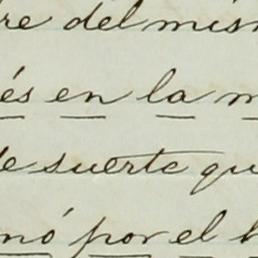 re del mism
és en la m
e suerte qu
nó por el h